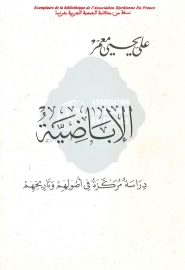 Exemplaire de la bibliothèque de l'Association Djerbienne En France
نسخة من مكتبة الجمعية الجربية بفرنسا
علي يحيى معمر
الإباضية
دراسة مركزة في أصولهم وتاريخهم